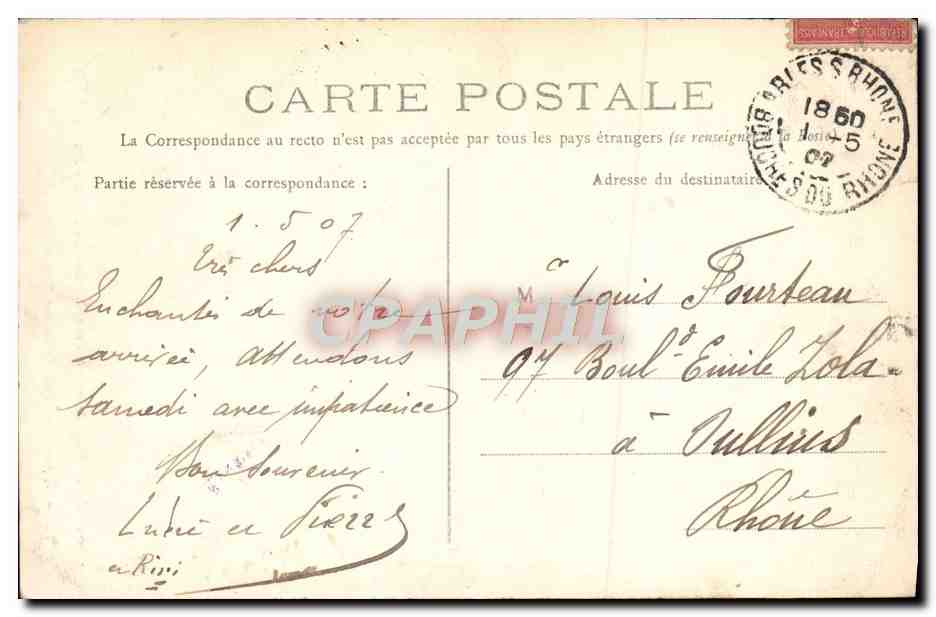 RÉPUBLIQUE FRANÇAISE
CARTE POSTALE
ARLES S RHONE
18 50
1 - 5
07
BOUCHES DU RHONE
La Correspondance au recto n'est pas acceptée par tous les pays étrangers (se renseigner à la Poste)
Partie réservée à la correspondance :
1. 5 07
Très chers
Enchantés de votre
arrivée, attendons
samedi avec impatience
Bon souvenir
et Pierre
et Riri
Adresse du destinataire
Mr Louis Fourteau
97 Boul.d Emile Zola
à Oullins
Rhône
CPAPHIL